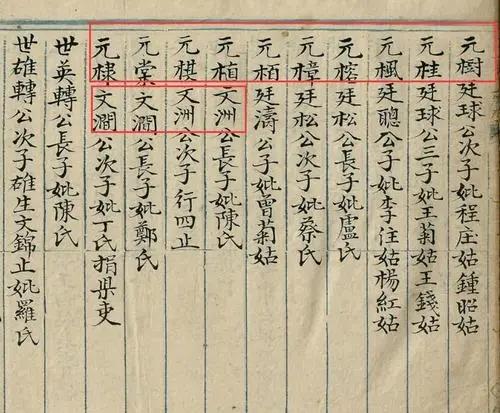 元樹廷球公次子妣程庄姑鍾昭姑
元桂廷球公三子妣王菊姑王錢姑
元楓廷聰公子妣李住姑楊紅姑
元榕廷松公長子妣盧氏
元樟廷松公次子妣蔡氏
元栢廷濤公子妣曾菊姑
元植文洲公長子妣陳氏
元棋文洲公次子行四止
元棠文澗公長子妣鄭氏
元棣文澗公次子妣丁氏捐県吏
世英轉公長子妣陳氏
世雄轉公次子雄生文錦止妣羅氏